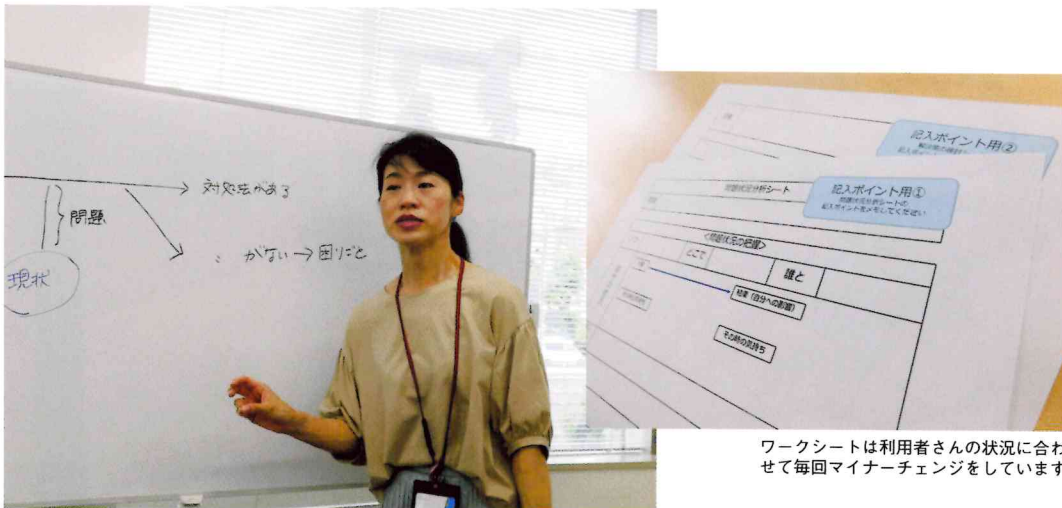 対処法がある
問題
〃 がない→困りごと
現状
記入ポイント用②
記入ポイント用①
問題状況分析シートの
記入ポイントをメモしてください
問題状況分析シート
<問題状況の把握>
どこで
誰と
結果（自分への影響）
その時の気持ち
ワークシートは利用者さんの状況に合わ
せて毎回マイナーチェンジをしています